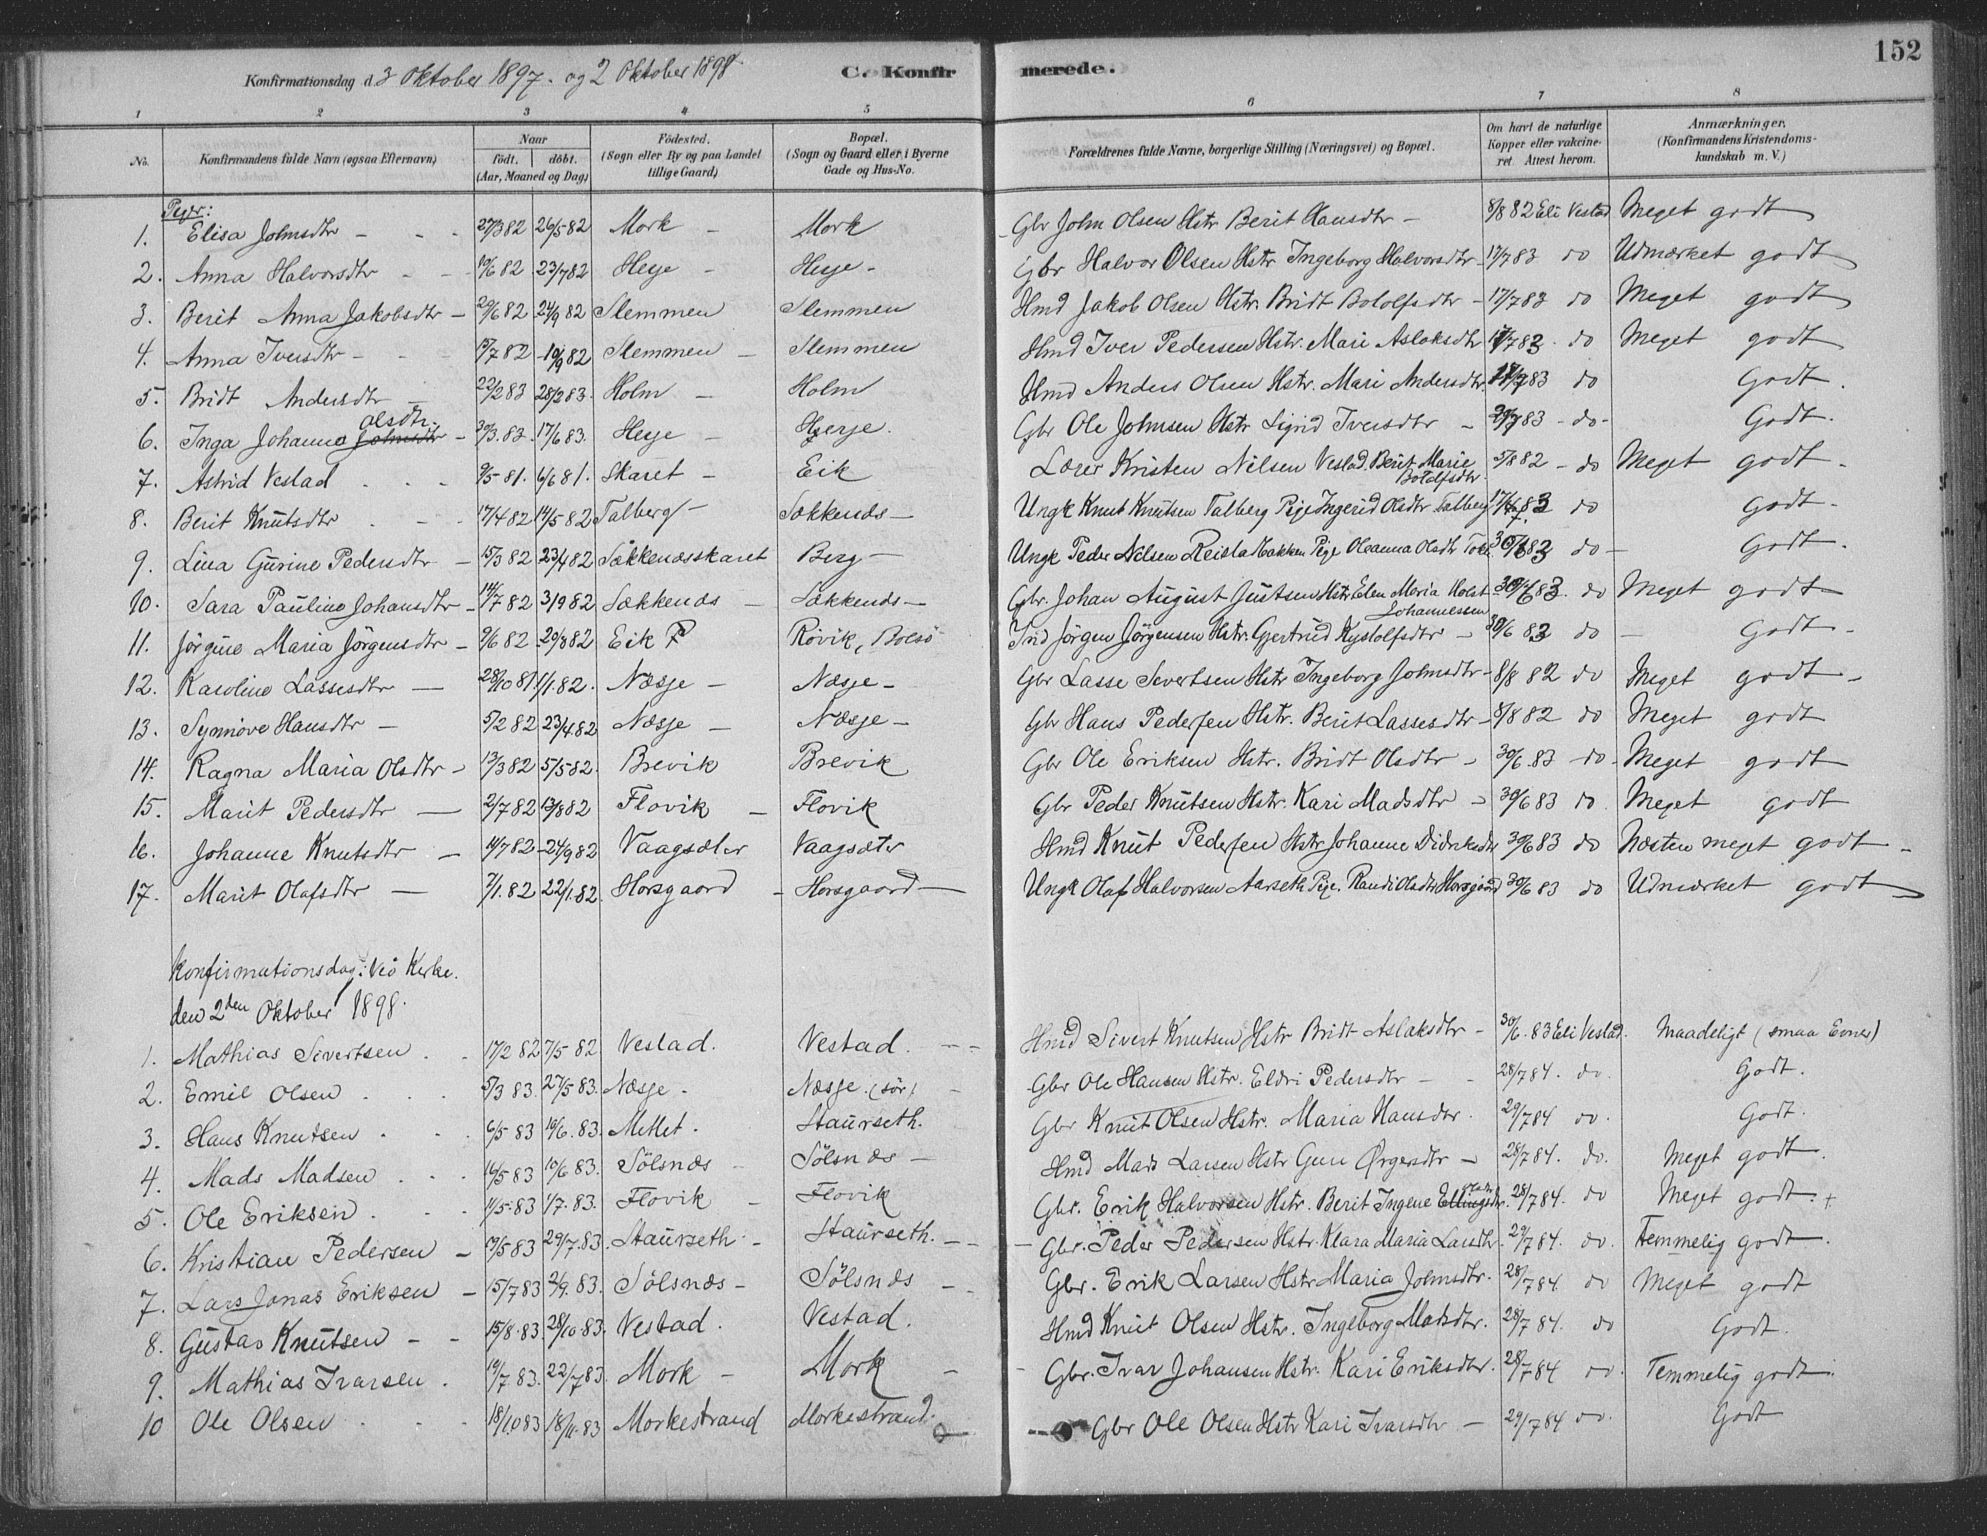 152
Konfirmationsdag d. 3 Oktober 1897. og 2 Oktober 1898
C. Konfirmerede.
1 2 3 4 5 6 7 8
No. Konfirmandens fulde Navn (ogsaa Efternavn) Naar født. døbt. (Aar, Maaned og Dag) Fødested. (Sogn eller By og paa Landet tillige Gaard) Bopæl. (Sogn og Gaard eller i Byerne Gade og Hus-No. Forældrenes fulde Navne, borgerlige Stilling (Næringsvei) og Bopæl. Om havt de naturlige Kopper eller vakcineret. Attest herom. Anmærkninger. (Konfirmandens Kristendomskundskab m. V.)
Piger:
1. Elisa Johnsdtr - 27/3 82 26/5 82 Mork - Mork Gbr John Olsen Hstr Berit Hansdtr - 8/8 82 Eli Vestad Meget godt
2. Anna Halvorsdtr - 10/6 82 23/7 82 Heje - Heje - Gbr Halvor Olsen Hstr Ingeborg Halvorsdtr - 17/7 83 do Udmærket godt
3. Berit Anna Jakobsdtr - 29/6 82 24/9 82 Slemmen Slemmen Hmd Jakob Olsen Hstr. Bridt Botolfsdtr - 17/7 83 do Meget godt
4. Anna Iversdtr - 15/7 82 10/9 82 Slemmen - Slemmen Hmd Iver Pedersen Hstr. Mari Aslaksdtr 17/7 83 do Meget godt
5. Bridt Andersdtr 22/2 83 28/2 83. Holm - Holm Hmd Anders Olsen Hstr. Mari Andersdtr. 17/7 83 do Godt.
6. Inga Johanna Johnsdtr Olsdtr. - 30/3 83 17/6 83. Heje - Heje. Gbr Ole Johnsen Hstr Sigrid Iversdtr - 83 - do - Godt.
7. Astrid Vestad 9/5 81. 6/6 81. Skaret - Eik Lærer Kristen Nilsen Vestad. Berit Marie Botolfsdtr. 5/8 82 - do Meget godt.
8. Berit Knutsdtr 17/4 82 14/5 82 Talberg - Sækkenæs - Ungk Knut Knutsen Talberg Pige Ingerid Olsdtr Talberg 83 do Godt.
9. Lina Gurine Pedersdtr - 15/3 82 23/4 82 Sækkenæsskaret Berg - Ungk Peder Nilsen Reistabakken Pige Oleanna Olsdtr 83 do - Godt.
10. Sara Pauline Johansdtr - 14/7 82 3/9 82 Sækkenæs - Sækkenæs - Gbr. Johan August Justsen Hstr Elen Maria Holst Johannessen 30/6 83. do Meget godt
11. Jørgine Maria Jørgensdtr - 9/6 82 20/8 82 Eik Røvik, Bolsø Ind Jørgen Jørgensen Hstr. Gjertrud Kystolfsdtr - 30/6 83 do - Godt -
12. Karoline Lassesdtr - 28/10 81 1/1 82. Næsje - Næsje - Gbr Lasse Sivertsen Hstr Ingeborg Johnsdtr - 8/8 82 do Meget godt -
13. Synnøve Hansdtr - 5/2 82 23/4 82 Næsje - Næsje - Gbr Hans Pedersen Hstr. Berit Lassesdtr - 8/8 82 do Meget godt
14. Ragna Maria Olsdtr - 13/3 82 5/5 82. Brevik Brevik Gbr Ole Eriksen Hstr. Bridt Olsdtr - 30/6. 83 do - Meget godt
15. Marit Pedersdtr - 2/7 82 13/8 82 Flovik - Flovik Gbr Peder Knutsen Hstr. Kari Madsdtr - 30/6 83 do Meget godt
16. Johanne Knutsdtr - 14/7 82 24/9 82 Vaagsæter Vaagsæter Hmd Knut Pedersen Hstr Johanne Didriksdtr 30/6 83 do Næsten meget godt -
17. Marit Olafsdtr - 7/1. 82 22/1. 82 Horsgaard - Horsgaard - Ungk Olaf Halvorsen Aarseth Pige. Randi Olsdtr Horsgaard 30/6 83 do Udmærket godt -
Konfirmationsdag i Veø Kirke.
den 2den Oktober 1898.
1. Mathias Sivertsen 17/2 82 7/5 82 Vestad. Vestad. Hmd Sivert Knutsen Hstr Bridt Aslaksdtr - 30/6. 83 Eli Vestad. Maadeligt (smaa Evner)
2. Emil Olsen 5/3 83. 27/5 83. Næsje. Næsje. (sør) Gbr Ole Hansen Hstr. Eldri Pedersdtr - 28/7 84. do. Godt.
3. Hans Knutsen 6/5 83 10/6. 83. Mettet. Staurseth. Gbr Knut Olsen Hstr. Maria Hansdtr. 29/7 84. do. Godt.
4. Mads Madsen 16/5 83 10/6 83. Sölsnæs - Sölsnæs - Hmd Mads Larsen Hstr Guri Ørgersdtr - 28/7 84. do. Meget godt.
5. Ole Eriksen 11/5 83 1/7. 83. Flovik - Flovik Gbr. Erik Halvorsen Hstr. Berit Ingene Ellingsdtr. 28/7 84. do Meget godt. +
6. Kristian Pedersen - 19/5 83 29/7. 83. Staurseth. Staurseth. Gbr. Peder Pedersen Hstr. Klara Maria Larsdtr. 29/7 84. do. Temmelig godt.
7. Lars Jonas Eriksen - 15/7 83 2/9. 83. Sölsnæs - Sölsnæs - Gbr. Erik Larsen Hstr Maria Johnsdtr. 28/7 84 do Meget godt
8. Gustav Knutsen - 15/8. 83. 28/10. 83. Vestad. Vestad. Hmd Knut Olsen Hstr. Ingeborg Madsdtr. 28/7 84. do Godt.
9. Mathias Ivarsen. 10/7 83. 22/7 83 Mork - Mork - Gbr. Ivar Johansen Hstr. Kari Eriksdtr. 28/7 84 do. Temmelig godt.
10 Ole Olsen 18/10 83 18/11. 83 Morkestrand Morkestrand. Gbr Ole Olsen Hstr Kari Ivarsdtr - 29/7 84 do. Godt